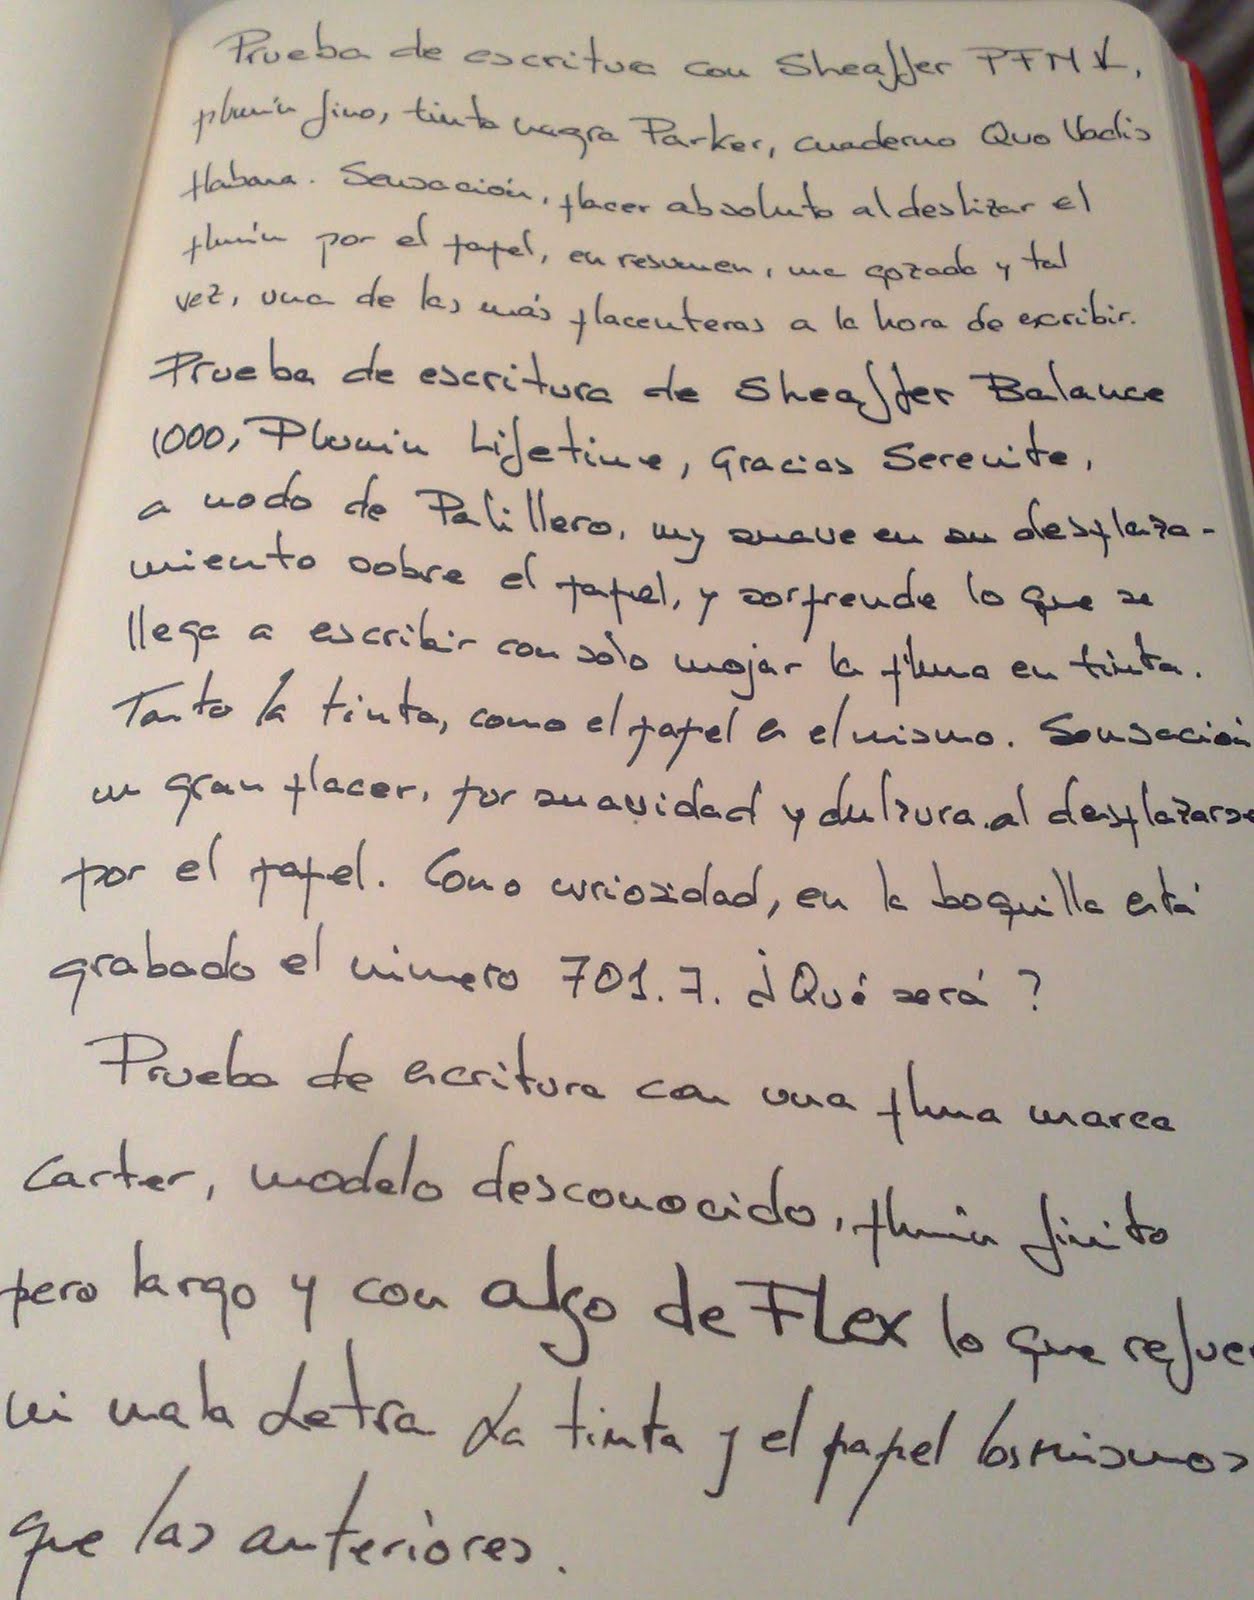 Prueba de escritura con Sheaffer PFM V,
plumín fino, tinta negra Parker, cuaderno Quo Vadis
Habana. Sensación, placer absoluto al deslizar el
plumín por el papel, en resumen, una gozada y tal
vez, una de las más placenteras a la hora de escribir.
Prueba de escritura de Sheaffer Balance
1000, Plumin Lifetime, Gracias Serenite,
a modo de Palillero, muy suave en su desplaza-
miento sobre el papel, y sorprende lo que se
llega a escribir con sólo mojar la pluma en tinta.
Tanto la tinta, como el papel es el mismo. Sensación
un gran placer, por suavidad y dulzura al desplazarse
por el papel. Como curiosidad, en la boquilla está
grabado el número 701.7. ¿Qué será?
Prueba de escritura con una pluma marca
Carter, modelo desconocido, plumín finito
pero largo y con algo de Flex lo que refuer
mi mala Letra La tinta y el papel los mismos
que las anteriores.